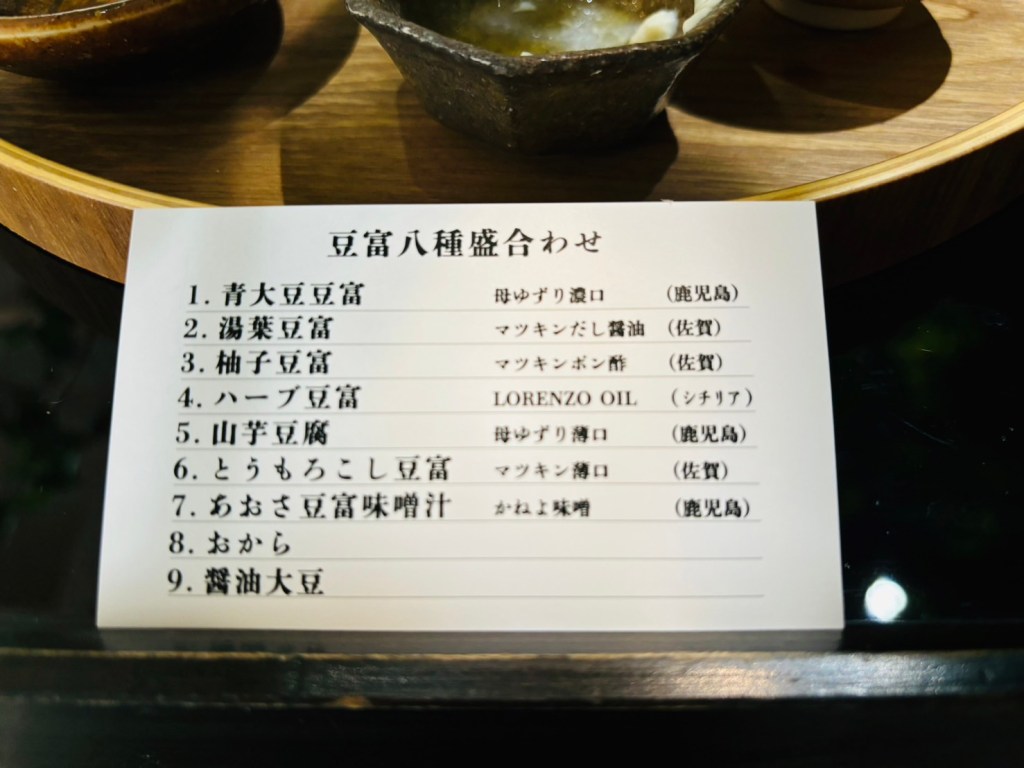 豆富八種盛合わせ
1. 青大豆豆富 母ゆずり濃口 (鹿児島)
2. 湯葉豆富 マツキンだし醤油 (佐賀)
3. 柚子豆富 マツキンポン酢 (佐賀)
4. ハーブ豆富 LORENZO OIL (シチリア)
5. 山芋豆腐 母ゆずり薄口 (鹿児島)
6. とうもろこし豆富 マツキン薄口 (佐賀)
7. あおさ豆富味噌汁 かねよ味噌 (鹿児島)
8. おから
9. 醤油大豆